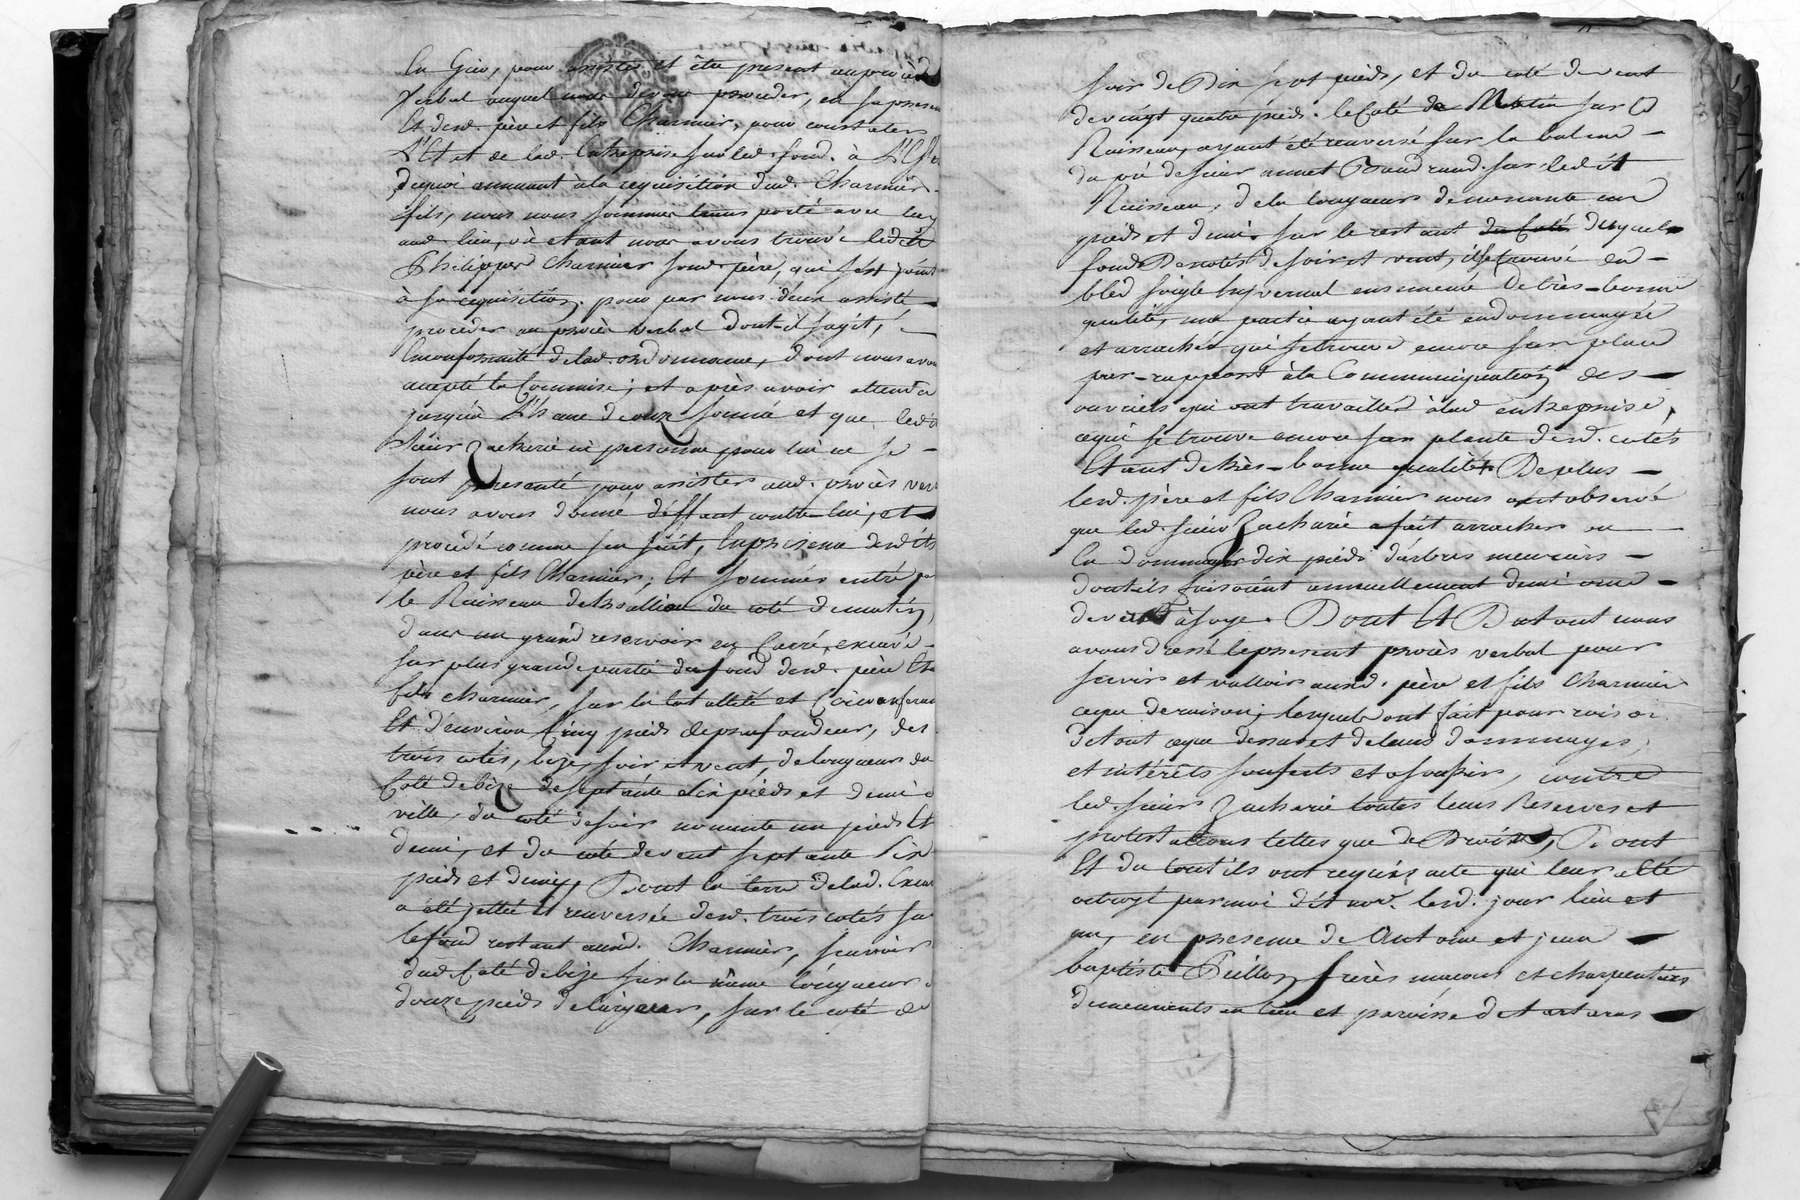 en Gier, pour assister et être present au procéd
Verbal auquel nous devons proceder, en la presen
Et desd. père et fils Charmier, pour constater
L'Etat de lad. Entreprise sur led. fond. à L'Eff
dequoi annuant à la requisition dud. Charmier
fils, nous nous sommes porté avec luy
aud. lieu, où etant nous avons trouvé ledit
Philippe Charmier sond. père, qui s'est joint
à sa requisition, pour par nous deux assisté
proceder au procès verbal dont il s'agit,
Enconformité de lad. ordonnance, dont nous avon
accepté la Commise; et après avoir attendu
jusqu'à L'h eure de onze sonné et que led.
Sieur Zacharie ni personne pour lui ne se
sont presenté pour assister aud. procès ver
nous avons donné deffaut contre lui, et
procédé comme s'en suit, En presence desdits
père et fils Charmier; Et sommes entré pa
le Ruisseau du coté de matin,
dans un grand reservoir en Carré, excavé
sur plus grande partie du fond desd. père Et
fils charmier, sur la totallité et Circonferan
Et d'environ Cinq pieds de profondeur, des
trois cotés, bize, soir et vent, de longueur du
Coté de bize de septante Six pieds et demi
ville, du coté de soir nonante un pieds Et
demi, et du coté de vent septante Six
pieds et demy, Dont la terre de lad. Excav
a été jettée et renversée desd. trois cotés su
le fond restant ausd. Charmier, scavoir
dud. Coté de bize sur la même longueur
douze pieds de largeur, sur le coté de
soir de Dix sept pieds, et du coté de vent
de vingt quatre pieds. le Coté de Matin sur le
Ruisseau, ayant été renversé sur la balme
du pré de sieur annet Baudrand sur ledit
Ruisseau, de la longueur de nonante un
pieds et demi. sur le restant du Coté duquel
fond Denotés de soir et vent, il se trouve en
bled soigle hyvernal ensemencé de très-bonne
qualité, une partie ayant été endommagée
et arrachée qui se trouve encore sur place
par-rapport à la Communiquation des
ouvriers qui ont travaillés à lad. entreprise,
ce qui se trouve encore sur plante desd. cotés
Etant de très-bonne qualité. De plus
lesd. père et fils Charmier nous ont observé
que led. sieur Zacharie a fait arracher ou
En dommager dix pieds d'arbres meuriers
dont ils faisoient annuellement demi once
de vers à soye. Dont Et Du tout nous
avons dressé le present procès verbal pour
servir et valloir ausd. père et fils Charmier
ce que de raison; lesquels ont fait pour raison
de tout ce que dessus et de leurs dommages,
et intérêts soufferts et a soufrir, contre
led. sieur Zacharie toutes leurs Reserves et
protestations telles que de Droit, Dont
Et du tout ils ont requis acte qui leur a été
octroyé par moi dit not. lesd. jour lieu et
an, en presence de Antoine et jean
baptiste frères maçons et charpentiers
demeurants en lieu et paroisse de tartaras